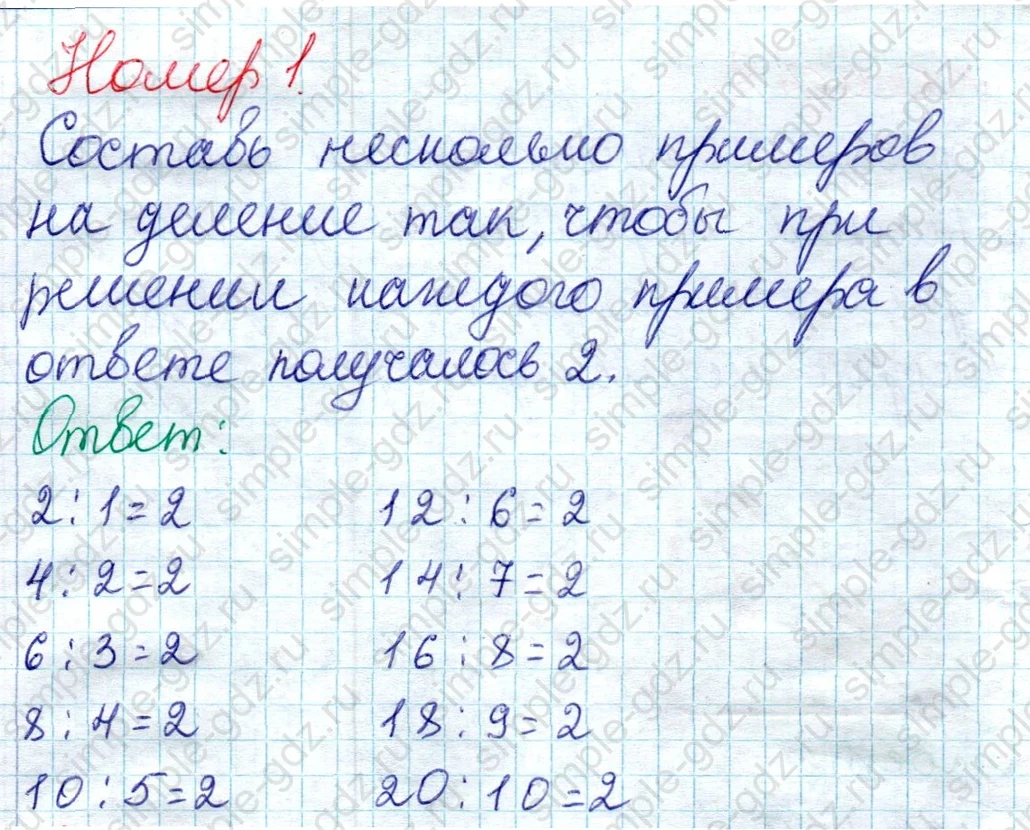 Номер 1.
Составь несколько примеров
на деление так, чтобы при
решении каждого примера в
ответе получалось 2.
Ответ:
2 : 1 = 2 12 : 6 = 2
4 : 2 = 2 14 : 7 = 2
6 : 3 = 2 16 : 8 = 2
8 : 4 = 2 18 : 9 = 2
10 : 5 = 2 20 : 10 = 2
simple-gdz.ru